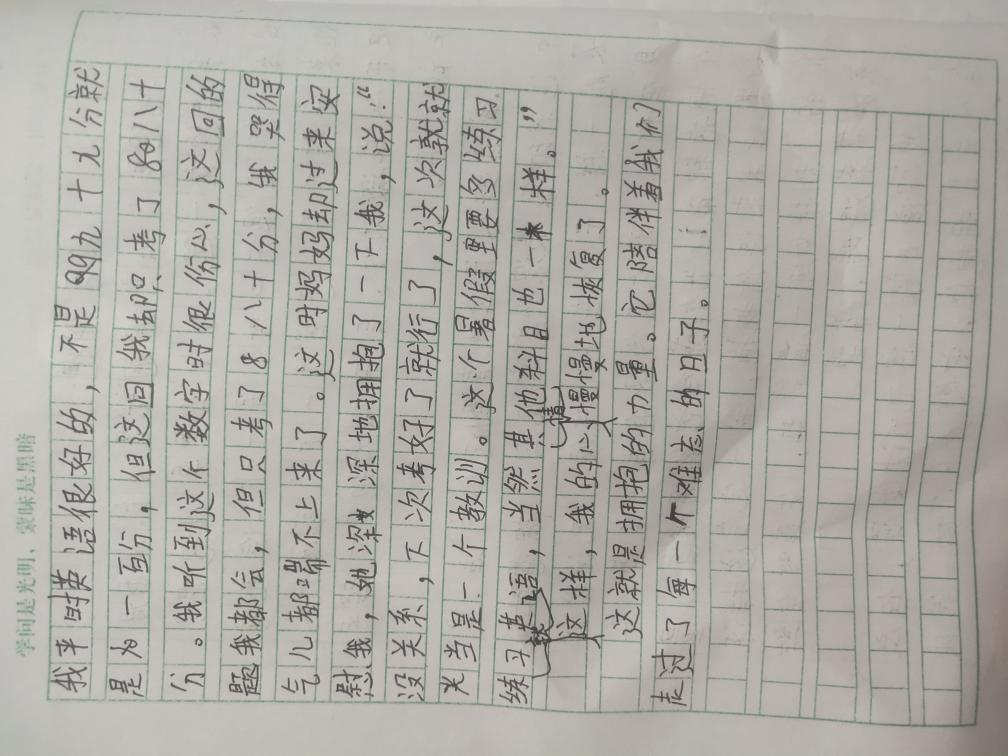 学问是光明，蒙昧是黑暗
我平时英语很好的，不是99九十九分就
是为一百分，但这回我却只考了80八十
分。我听到这个数字时很伤心，这回的
题我都会，但只考了8八十分，我哭得
气儿都喘不上来了。这时妈妈却过来安
慰我，她深深地拥抱了一下我，说：“
没关系，下次考好了就行了，这次就就
光当是一个教训。这个暑假里要多练习
练习英语，当然其他科目也一样。”
就 情
这样，我的心慢慢地恢复了。
这就是拥抱的力量。它陪伴着我们
走过了每一个难态的日子。